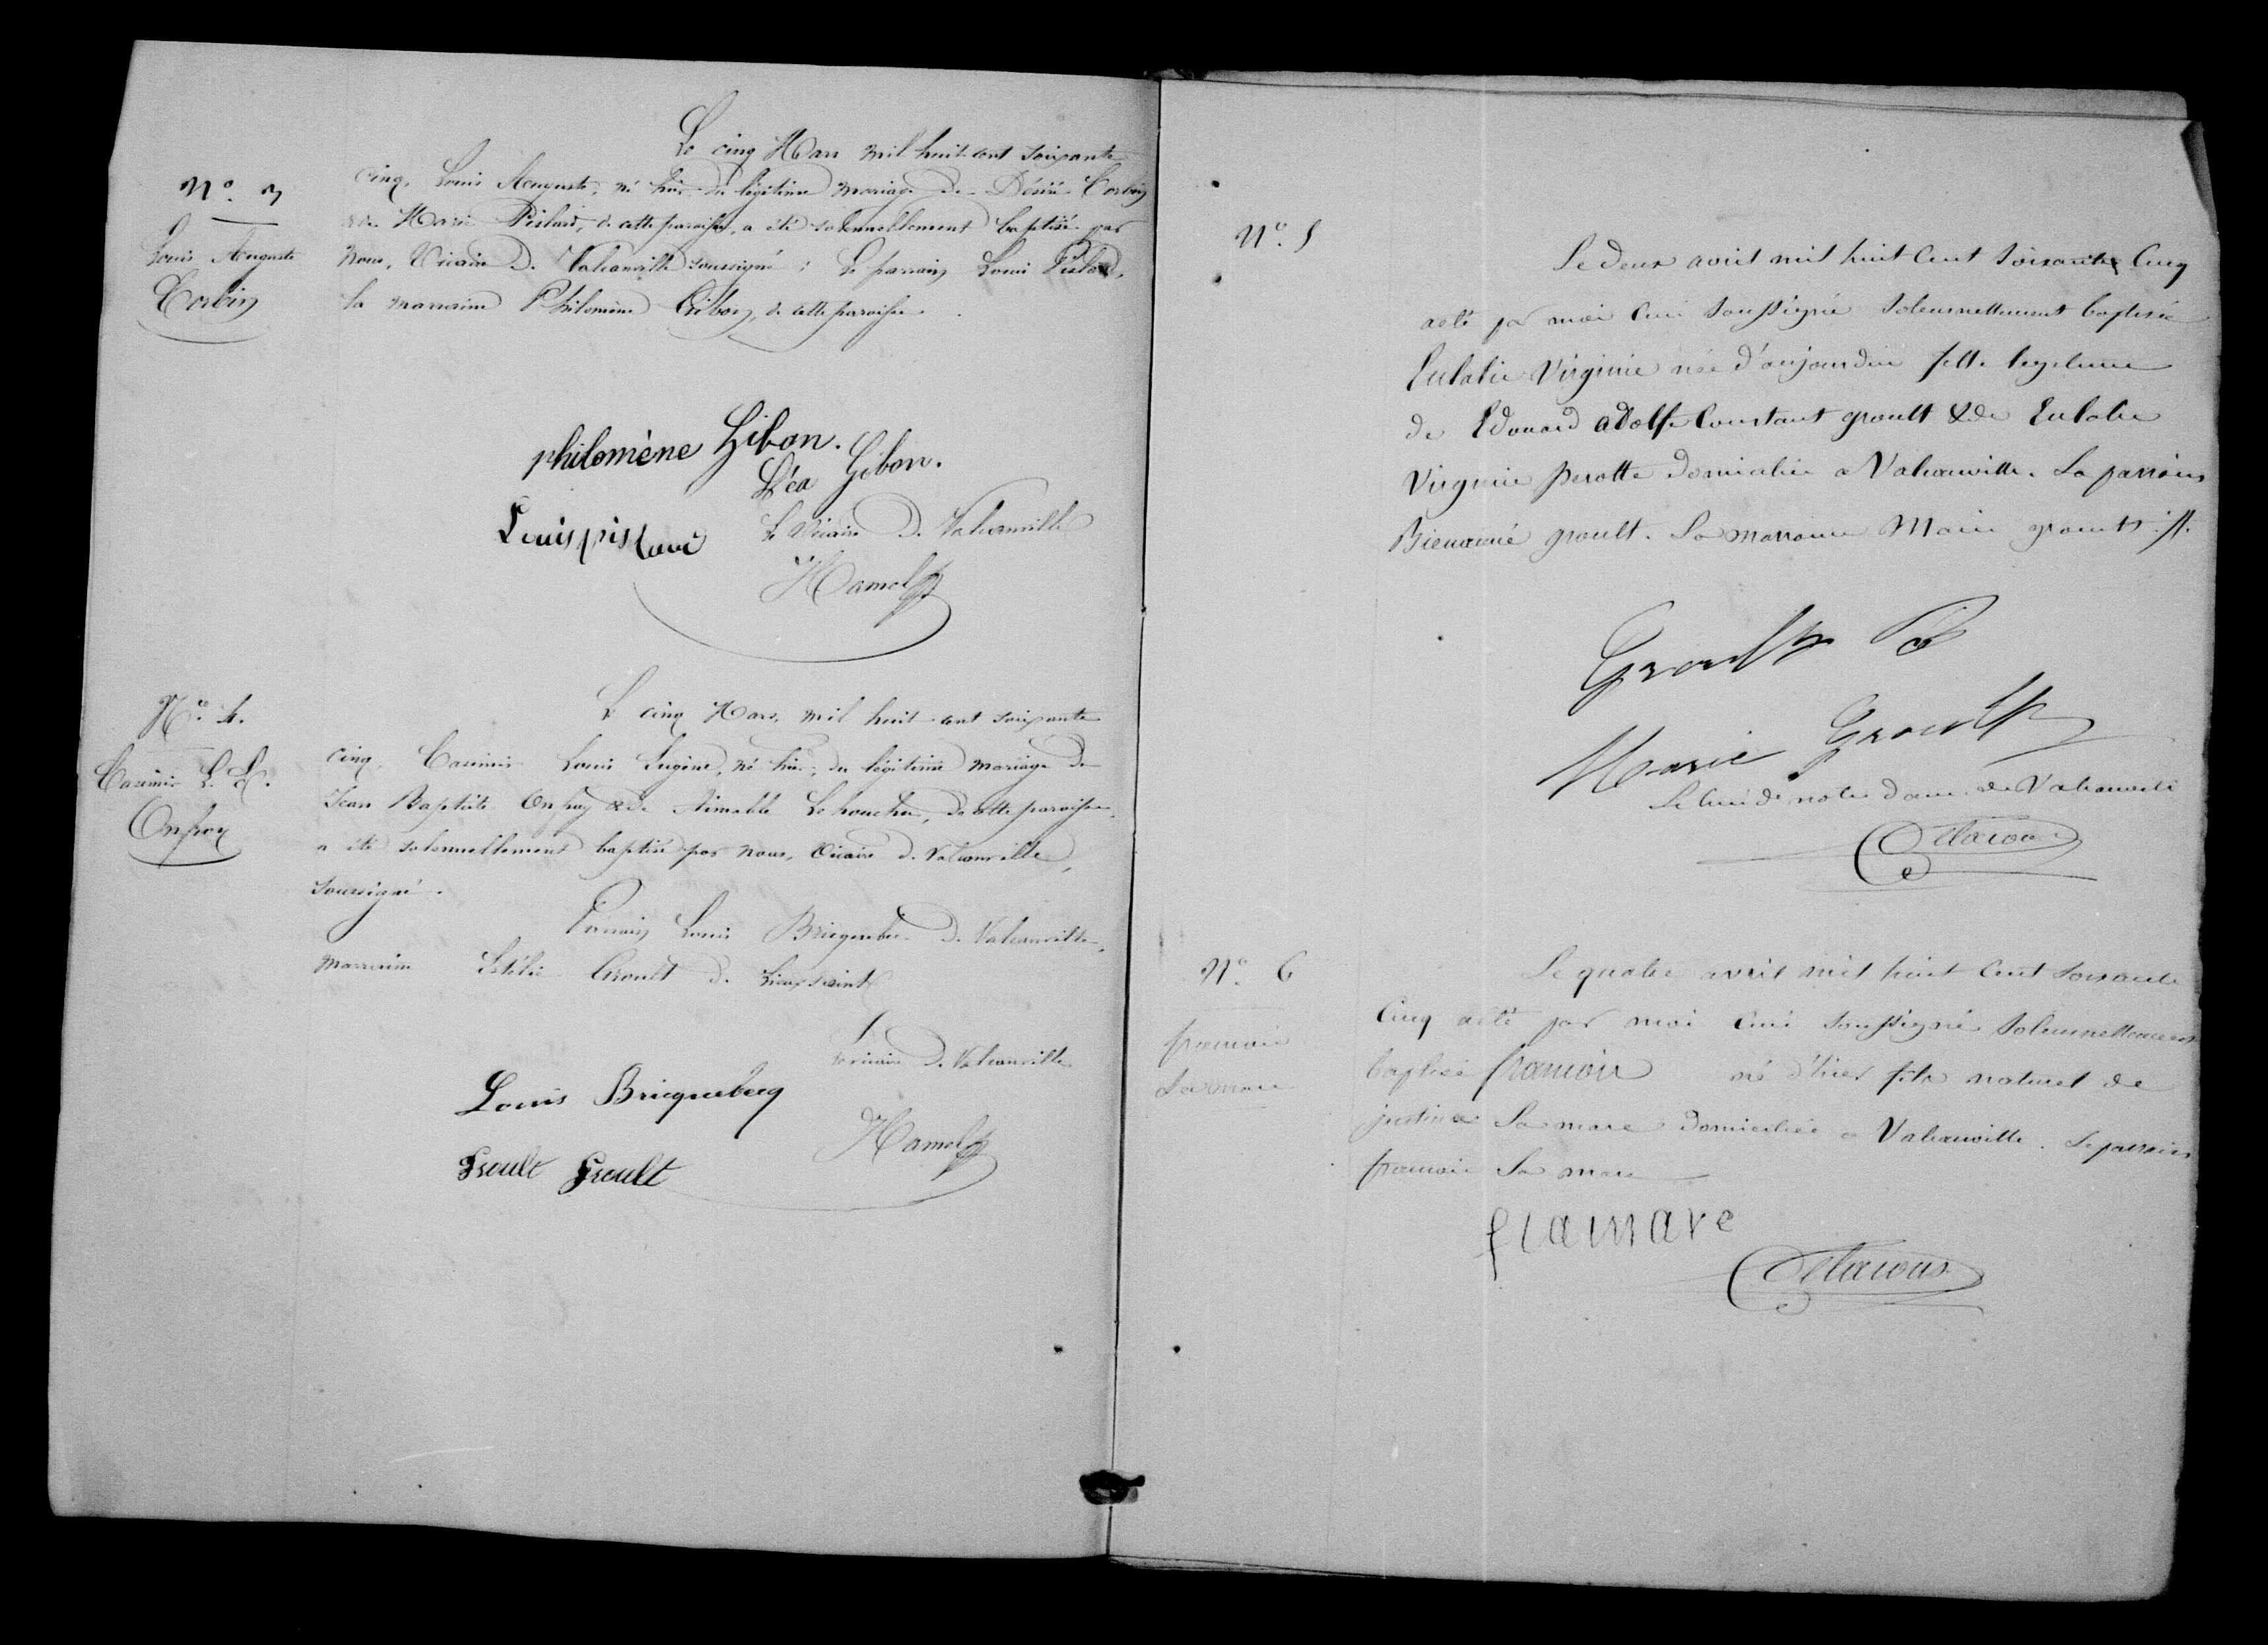 N° 3
Louis Auguste
Corbin
Le cinq Mars mil huit cent soixante
cinq, Louis Auguste, né hier du légitime mariage de Désiré Corbin
& de Marie Pislard, de cette paroisse, a été solennellement baptisé par
nous, Vicaire de Valcanville soussigné ; Le parrain Louis Pislard,
la marraine Philomène Gibon, de cette paroisse.
philomène Gibon.
Léa Gibon.
Louis pislard
Le Vicaire de Valcanville
Hamel
N° 4.
Casimir L. E.
Onfroy
Le cinq Mars, mil huit cent soixante
cinq, Casimir Louis Eugène, né hier, du légitime mariage de
Jean Baptiste Onfroy & de Aimable Lehoucher, de cette paroisse,
a été solennellement baptisé par nous, Vicaire de Valcanville,
soussigné.
Parrain Louis Bricquebec de Valcanville,
marraine Groult de
Le vicaire de Valcanville
Louis Bricquebecq
Hamel
Groult Groult
N° 5
Le deux avril mil huit cent soixante cinq
a été par moi curé soussigné solennellement baptisée
Eulalie Virginie née d'aujourdui fille legitime
de Edouard adolfe Constant groult & de Eulalie
Virginie perotte domiciliée a Valcanville. Le parrain
Bienaimé groult. La marraine Marie groult
Groult B
Marie Groult
Le curé de notre dame de Valcanville
N° 6
francois
Lamare
Le quatre avril mil huit cent soixante
cinq a été par moi curé soussigné solennellement
baptisé francois né d'hier fils naturel de
justine Lamare domiciliée a Valcanville. Le parrain
francois Lamare
f lamare